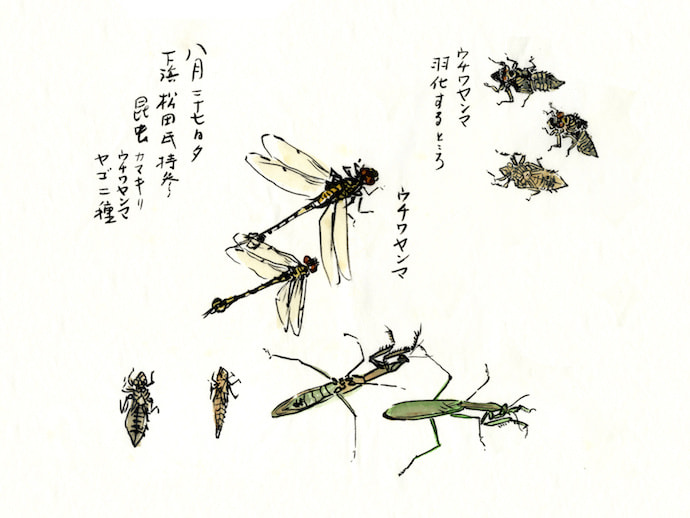 ウチワヤンマ
羽化するところ
ウチワヤンマ
八月二十七日夕
下浜 松田氏持参
昆虫 カマキリ
ウチワヤンマ
ヤゴ二種